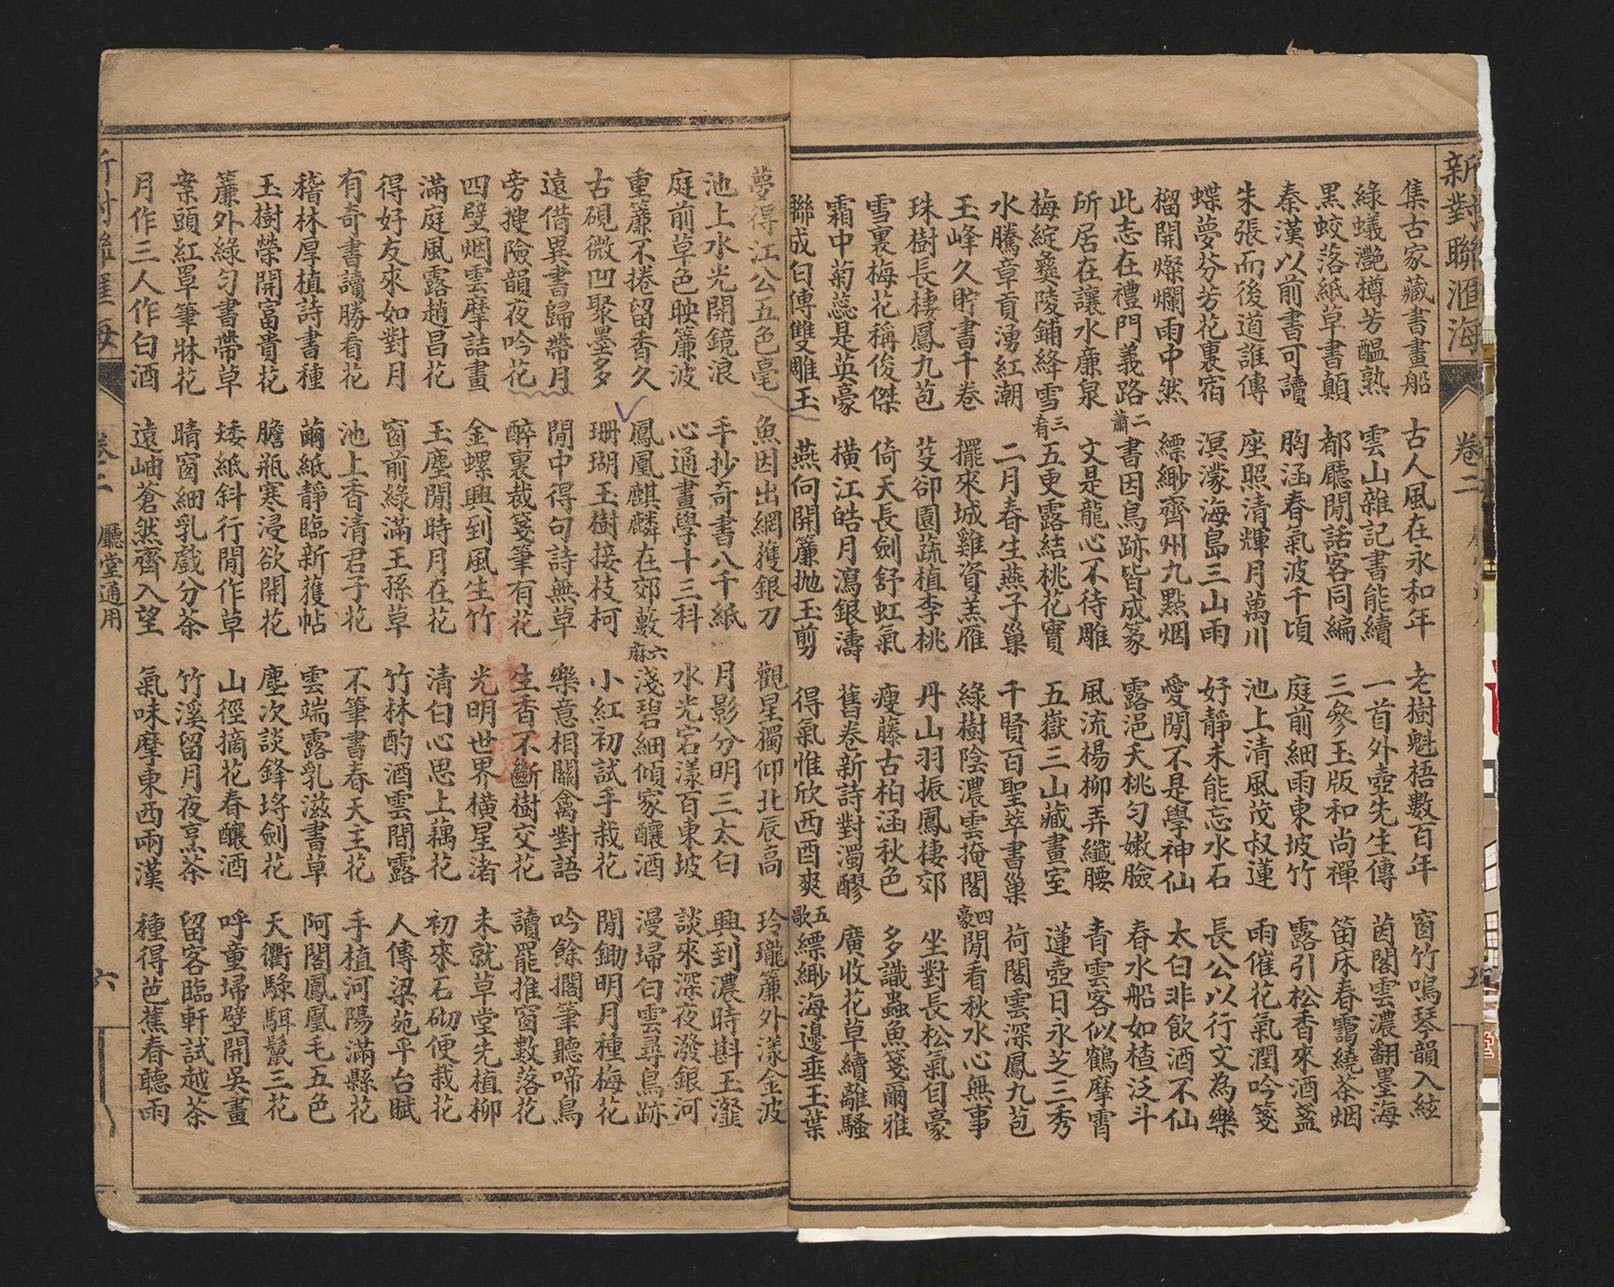 新對聯滙海 卷二
集古家藏書畫船 古人風在永和年 老樹魁梧數百年 窗竹鳴琴韻入絃
綠蟻灔樽芳醞熟 雲山雜記書能續 一首外壺先生傳 茵閣雲濃翻墨海
黑蛟落紙草書顛 都廳閒話客同編 三參玉版和尚禪 笛床春靄繞茶烟
秦漢以前書可讀 胸涵春氣波千頃 庭前細雨東坡竹 露引松香來酒盞
朱張而後道誰傳 座照清輝月萬川 池上清風茂叔蓮 雨催花氣潤吟箋
蝶夢芬芳花裏宿 溟濛海島三山雨 好靜未能忘水石 長公以行文為樂
榴開燦爛雨中然 縹緲齊州九點烟 愛閒不是學神仙 太白非飲酒不仙
此志在禮門義路 二蕭 書因鳥跡皆成篆 露浥夭桃勻嫩臉 春水船如楂泛斗
所居在讓水廉泉 文是龍心不待雕 風流楊柳弄纖腰 青雲客似鶴摩霄
梅綻彝陵鋪絳雪 三肴 五更露結桃花實 五嶽三山藏畫室 蓮壺日永芝三秀
水騰章貢湧紅潮 二月春生燕子巢 千賢百聖萃書巢 荷閣雲深鳳九苞
玉峰久貯書千卷 擺來城雞資羔雁 綠樹陰濃雲掩閣 四豪 閒看秋水心無事
珠樹長棲鳳九苞 芟卻園蔬植李桃 丹山羽振鳳棲郊 坐對長松氣自豪
雪裏梅花稱俊傑 倚天長劍舒虹氣 瘦藤古柏涵秋色 多識蟲魚箋爾雅
霜中菊蕊是英豪 橫江皓月瀉銀濤 舊卷新詩對濁醪 廣收花草續離騷
聯成白傅雙雕玉 燕向開簾拋玉剪 得氣惟欣西酉爽 五歌 縹緲海邊垂玉葉
夢得江公五色毫 魚因出網獲銀刀 觀星獨仰北辰高 玲瓏簾外漾金波
池上水光開鏡浪 手抄奇書八千紙 月影分明三太白 興到濃時斟玉瀣
庭前草色映簾波 心通畫學十三科 水光宕漾百東坡 談來深夜潑銀河
重簾不捲留香久 鳳凰麒麟在郊藪 六麻 淺碧細傾家釀酒 漫埽白雲尋鳥跡
古硯微凹聚墨多 珊瑚玉樹接枝柯 小紅初試手栽花 閒鋤明月種梅花
遠借異書歸帶月 閒中得句詩無草 樂意相關禽對語 吟餘擱筆聽啼鳥
旁搜險韻夜吟花 醉裏裁箋筆有花 生香不斷樹交花 讀罷推窗數落花
四壁烟雲摩詰畫 金螺興到風生竹 光明世界橫星渚 未就草堂先植柳
滿庭風露趙昌花 玉麈閒時月在花 清白心思上藕花 初來石砌便栽花
得好友來如對月 窗前綠滿王孫草 竹林酌酒雲間露 人傳梁苑平台賦
有奇書讀勝看花 池上香清君子花 不筆書春天主花 手植河陽滿縣花
稽林厚植詩書種 繭紙靜臨新獲帖 雲端露乳滋書草 阿閣鳳凰毛五色
玉樹榮開富貴花 膽瓶寒浸欲開花 麈次談鋒埓劍花 天衢騄駬鬣三花
簾外綠勻書帶草 矮紙斜行閒作草 山徑摘花春釀酒 呼童埽壁開吳畫
案頭紅罩筆牀花 晴窗細乳戲分茶 竹溪留月夜烹茶 留客臨軒試越茶
月作三人作白酒 遠岫蒼然齊入望 氣味摩東西兩漢 種得芭蕉春聽雨
廳堂通用 六